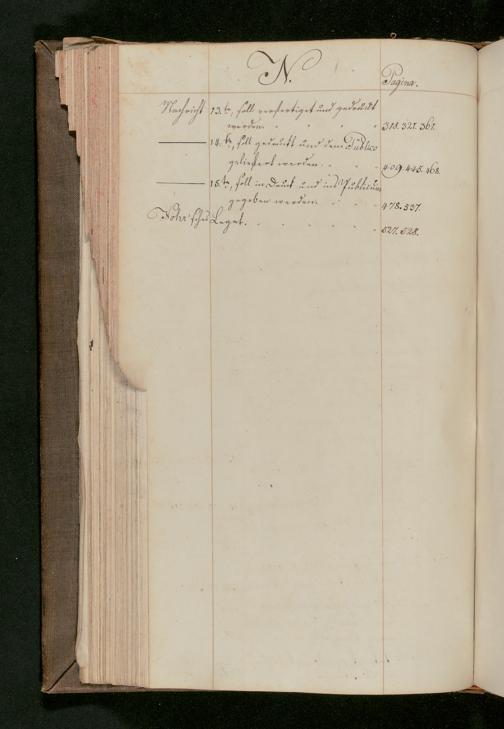 N.
Pagina.
Nachricht 13.te, soll verfertiget und gedruckt
werden. 318. 321. 361.
—— 14.te, soll gedruckt und dem Publico
geliefert werden. 409. 445. 468.
—— 15.te, soll in Druck und ins Publicum
gegeben werden. 478. 337.
Nohr'sches Legat. 527. 528.